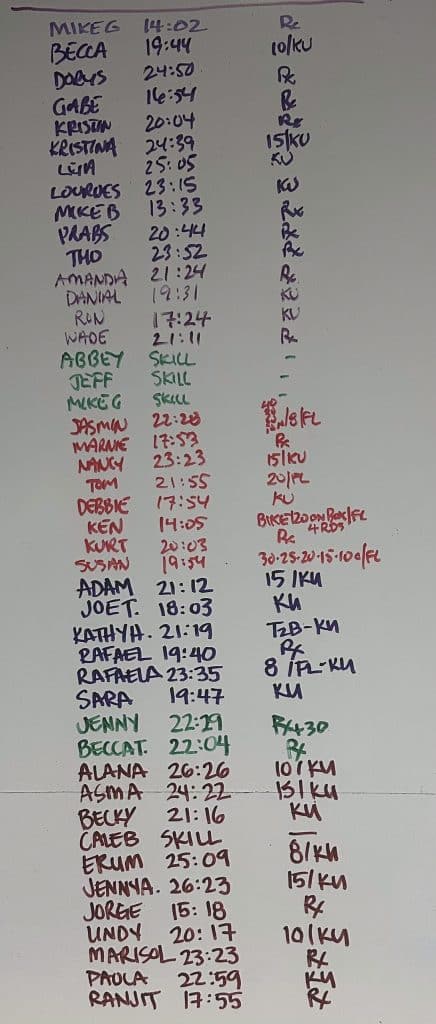 MIKE G 14:02 Rx
BECCA 19:44 10/KU
DOBYS 24:50 Rx
GABE 16:54 Rx
KRISTIN 20:04 Rx
KRISTINA 24:39 15/KU
25:05 KU
LOURDES 23:15 KU
MIKE B 13:33 Rx
PRABS 20:44 Rx
THO 23:52 Rx
AMANDA 21:24 Rx
DANIAL 19:31 KU
RON 17:24 KU
WADE 21:11 Rx
ABBEY SKILL -
JEFF SKILL -
MIKE G SKILL -
JASMIN 22:28 /8/FL
MARNIE 17:53 Rx
NANCY 23:23 15/KU
TOM 21:55 20/FL
DEBBIE 17:54 KU
KEN 14:05 BIKE/20 ON BOX/FL 4 RDS
KURT 20:03 Rx
SUSAN 19:54 30-25-20-15-10 c/FL
ADAM 21:12 15/KU
JOE T. 18:03 KU
KATHY H. 21:19 T2B-KU
RAFAEL 19:40 Rx
RAFAELA 23:35 8/FL-KU
SARA 19:47 KU
JENNY 22:29 Rx+30
BECCA T. 22:04 Rx
ALANA 26:26 10/KU
ASMA 24:22 15/KU
BECKY 21:16 KU
CALEB SKILL —
ERUM 25:09 8/KU
JENNY A. 26:23 15/KU
JORGE 15:18 Rx
LINDY 20:17 10/KU
MARISOL 23:23 Rx
PAOLA 22:59 KU
RANJIT 17:55 Rx